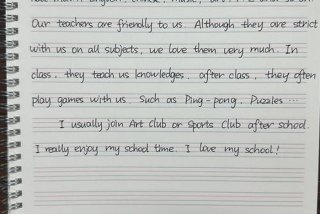 Our teachers are friendly to us. Although they are strict
with us on all subjects, we love them very much. In
class, they teach us knowledges, after class, they often
play games with us. Such as Ping-pong, Puzzles ...
I usually join Art Club or Sports Club after school.
I really enjoy my school time. I love my school!